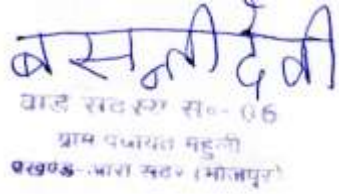 बसन्ती देवी
वार्ड सदस्य सं०- 06
ग्राम पंचायत महुली
प्रखण्ड-आरा सदर (भोजपुर)